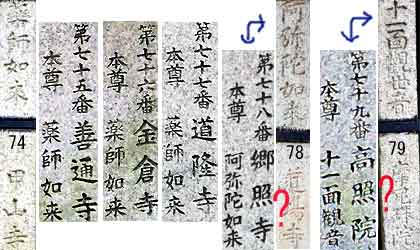 薬師如来
74
甲山寺
第七十五番 善通寺
本尊 薬師如来
第七十六番 金倉寺
本尊 薬師如来
第七十七番 道隆寺
本尊 薬師如来
第七十八番 郷照寺
本尊 阿弥陀如来
阿弥陀如来
78
?
第七十九番 高照院
本尊 十一面観音
十一面観世音
79
?